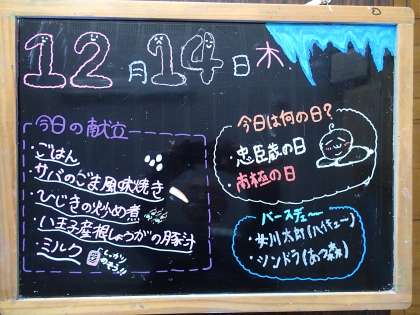 12月14日木
今日の献立
・ごはん
・サバのごま風味焼き
・ひじきの炒め煮
・八王子産根しょうがの豚汁
・ミルク
しっかりのもう!!
今日は何の日?
・忠臣蔵の日
・南極の日
バースデー
・女川太郎(ハイキュー)
・シンドラ(あつ森)